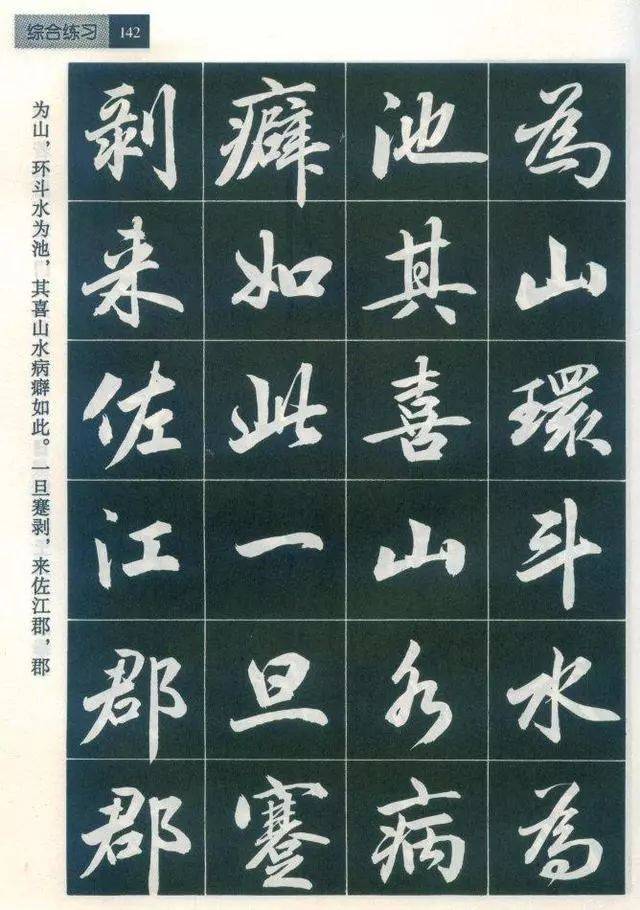 综合练习 142
為山環斗水為
池其喜山水病
癖如此一旦蹇
剥来佐江郡郡
为山，环斗水为池，其喜山水病癖如此。一旦蹇剥，来佐江郡，郡